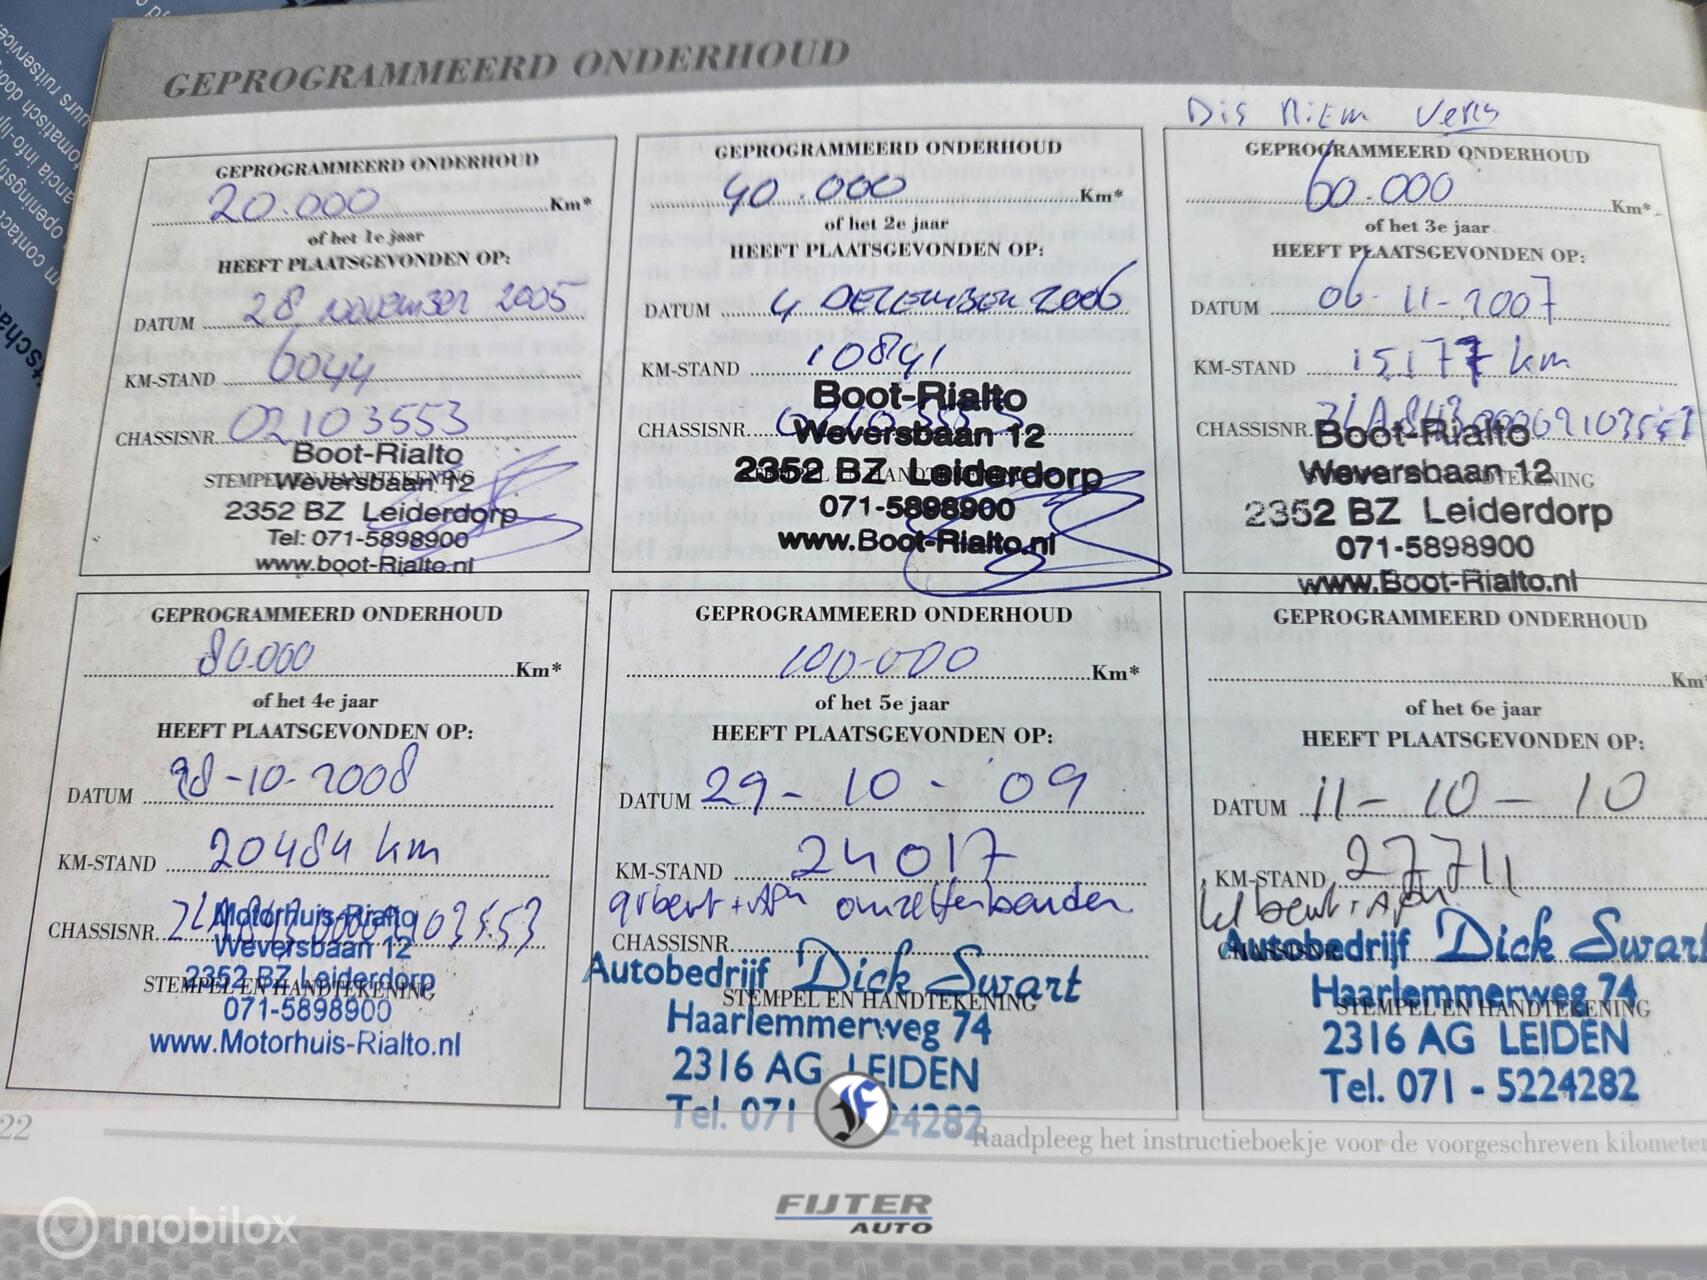 GEPROGRAMMEERD ONDERHOUD
Dis Riem Vers
GEPROGRAMMEERD ONDERHOUD
20.000 Km*
of het 1e jaar
HEEFT PLAATSGEVONDEN OP:
DATUM 28 november 2005
KM-STAND 6044
CHASSISNR. 02103553
STEMPEL EN HANDTEKENING
Boot-Rialto
Weversbaan 12
2352 BZ Leiderdorp
Tel: 071-5898900
www.boot-Rialto.nl
GEPROGRAMMEERD ONDERHOUD
40.000 Km*
of het 2e jaar
HEEFT PLAATSGEVONDEN OP:
DATUM 4 DECEMBER 2006
KM-STAND 10841
CHASSISNR. 02103553
STEMPEL EN HANDTEKENING
Boot-Rialto
Weversbaan 12
2352 BZ Leiderdorp
071-5898900
www.Boot-Rialto.nl
GEPROGRAMMEERD ONDERHOUD
60.000 Km*
of het 3e jaar
HEEFT PLAATSGEVONDEN OP:
DATUM 06-11-2007
KM-STAND 15177 km
CHASSISNR. ZLA84300002103553
STEMPEL EN HANDTEKENING
Boot-Rialto
Weversbaan 12
2352 BZ Leiderdorp
071-5898900
www.Boot-Rialto.nl
GEPROGRAMMEERD ONDERHOUD
80.000 Km*
of het 4e jaar
HEEFT PLAATSGEVONDEN OP:
DATUM 28-10-2008
KM-STAND 20484 km
CHASSISNR. ZLA84300002103553
STEMPEL EN HANDTEKENING
Motorhuis-Rialto
Weversbaan 12
2352 BZ Leiderdorp
071-5898900
www.Motorhuis-Rialto.nl
GEPROGRAMMEERD ONDERHOUD
100.000 Km*
of het 5e jaar
HEEFT PLAATSGEVONDEN OP:
DATUM 29-10-09
KM-STAND 24017
CHASSISNR.
STEMPEL EN HANDTEKENING
Autobedrijf Dick Swart
Haarlemmerweg 74
2316 AG LEIDEN
Tel. 071 24282
GEPROGRAMMEERD ONDERHOUD
Km*
of het 6e jaar
HEEFT PLAATSGEVONDEN OP:
DATUM 11-10-10
KM-STAND 27711
CHASSISNR.
STEMPEL EN HANDTEKENING
Autobedrijf Dick Swart
Haarlemmerweg 74
2316 AG LEIDEN
Tel. 071 - 5224282
22
* Raadpleeg het instructieboekje voor de voorgeschreven kilometer
FIJTER
AUTO
mobilox